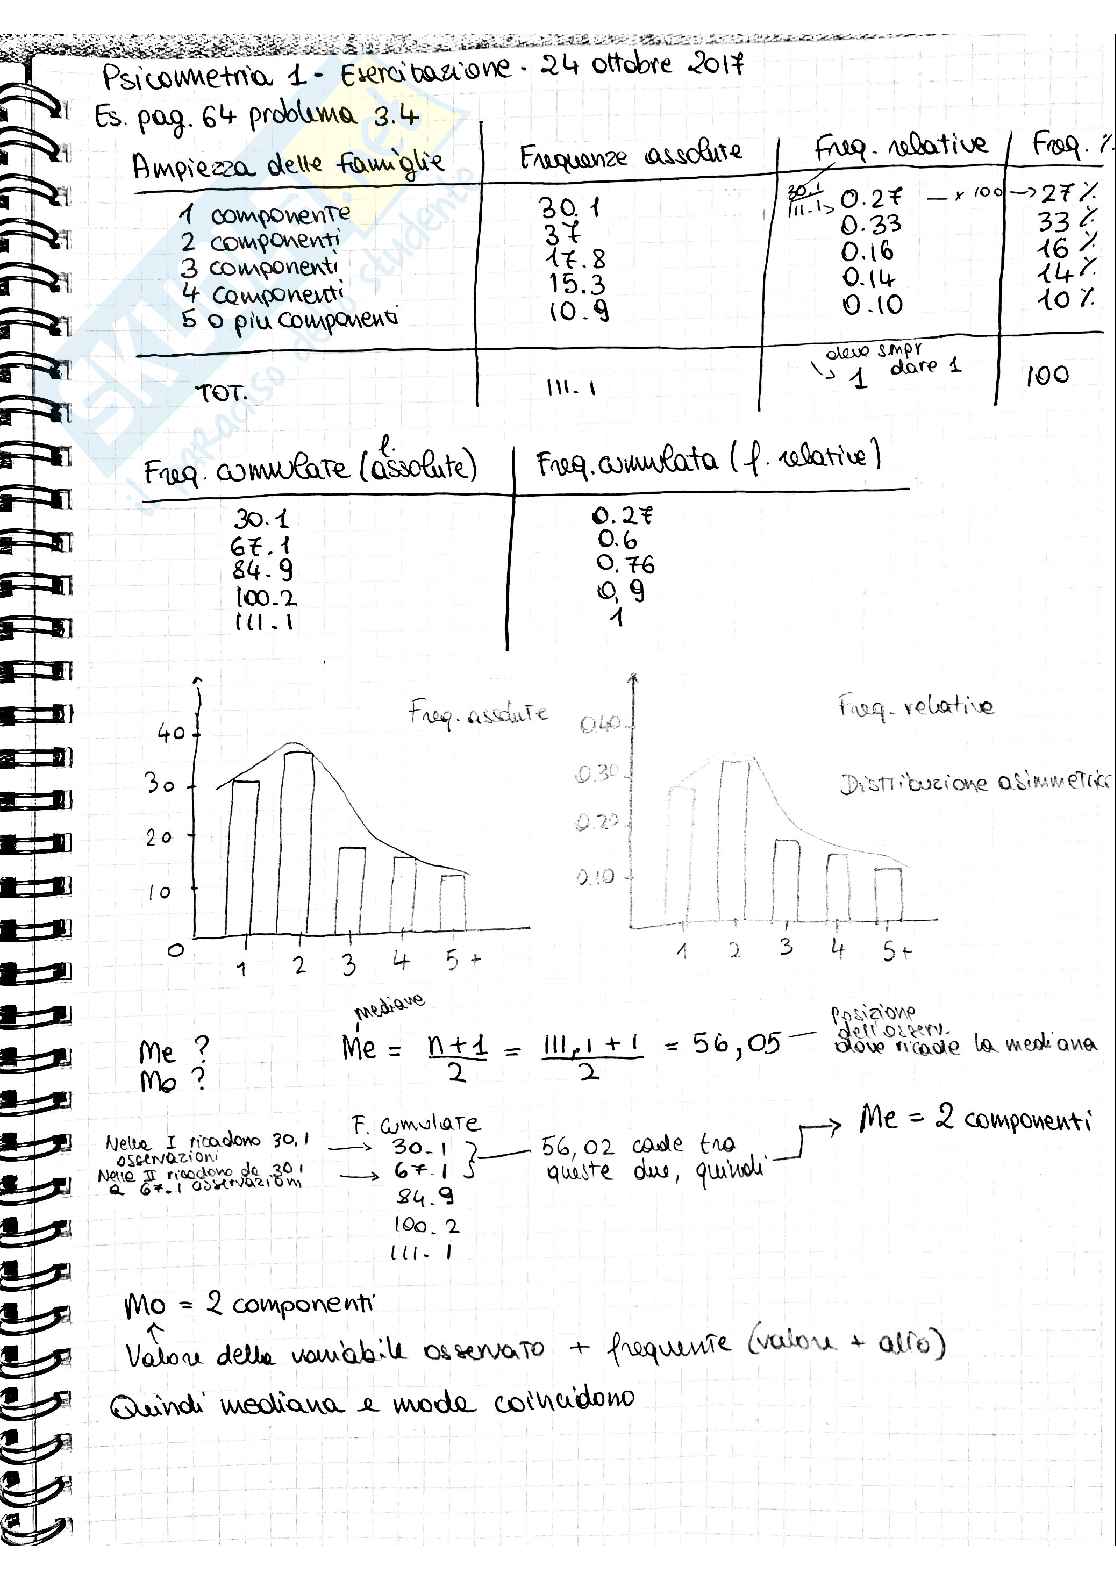 Psicometria 1 - Esercitazione - 24 ottobre 2017
Es. pag. 64 problema 3.4
Ampiezza delle famiglie | Frequenze assolute | Freq. relative | Freq. %
1 componente 30.1 30.1/111.1 → 0.27 — x 100 → 27%
2 componenti 37 0.33 33%
3 componenti 17.8 0.16 16%
4 componenti 15.3 0.14 14%
5 o piu componenti 10.9 0.10 10%
devo smpr
TOT. 111.1 ↳ 1 dare 1 100
Freq. cumulate (f. assolute) | Freq. cumulata (f. relative)
30.1 0.27
67.1 0.6
84.9 0.76
100.2 0,9
111.1 1
Freq. assolute
40
30
20
10
0
1 2 3 4 5+
Freq. relative
Distribuzione asimmetrica
0.40
0.30
0.20
0.10
1 2 3 4 5+
mediana
Me ? Me = n+1/2 = 111,1+1/2 = 56,05 — posizione dell'osserv. dove ricade la mediana
Mo ?
F. cumulate
Nella I ricadono 30,1 osservazioni → 30.1
Nella II ricadono da 30.1 a 67.1 osservazioni → 67.1
84.9
100.2
111.1
56,02 cade tra
queste due, quindi → Me = 2 componenti
Mo = 2 componenti
↑
Valore della variabile osservato + frequente (valore + alto)
Quindi mediana e moda coincidono
SKUOLA.net
il paradiso dello studente